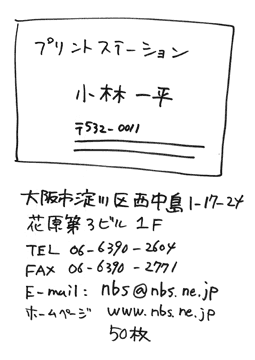 プリントステーション
小林一平
〒532-0011
大阪市淀川区西中島1-17-24
花原第3ビル1F
TEL 06-6390-2604
FAX 06-6390-2771
E-mail: nbs@nbs.ne.jp
ホームページ www.nbs.ne.jp
50枚